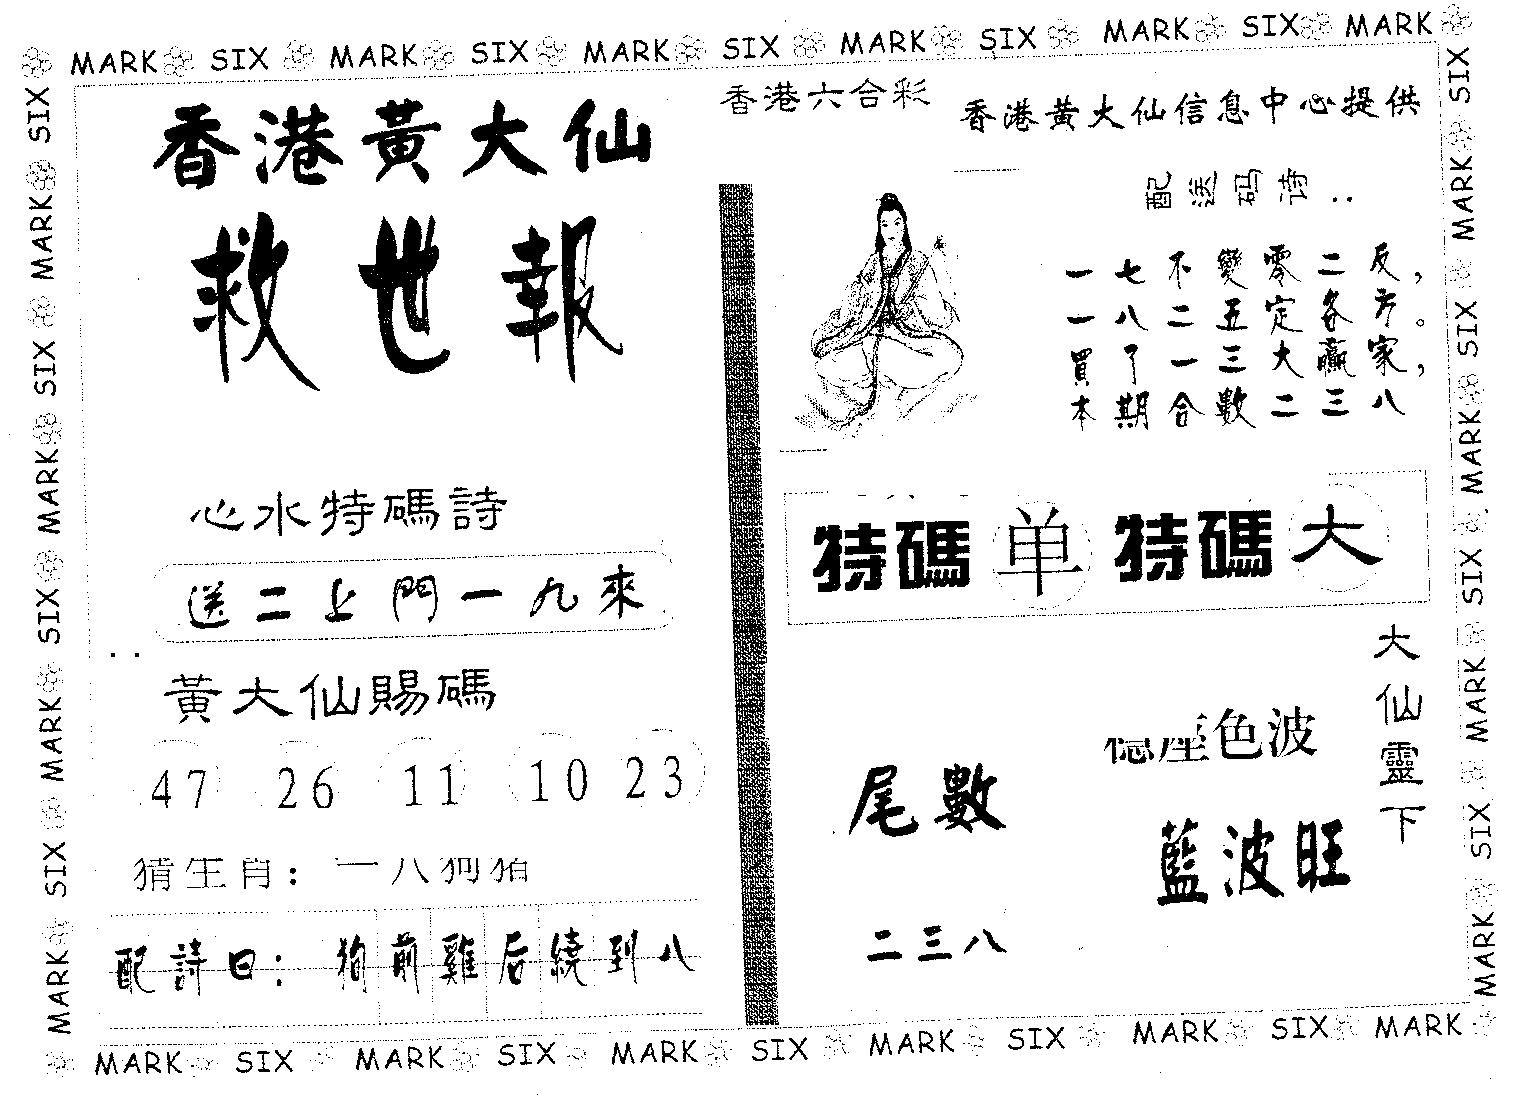 MARK SIX MARK SIX MARK SIX MARK SIX MARK SIX MARK
香港黃大仙
救世報
心水特碼詩
送二上門一九來
黃大仙賜碼
47 26 11 10 23
猜生肖: 一八狗猪
配詩曰: 狗前雞后繞到八
香港六合彩
香港黃大仙信息中心提供
配送码诗..
一七不變零二反,
一八二五定各方。
買了一三大贏家,
本期合數二三八
特碼 单 特碼 大
尾數
二三八
色波
藍波旺
大仙靈下
MARK SIX MARK SIX MARK SIX MARK SIX
MARK SIX MARK SIX MARK SIX MARK SIX
MARK SIX MARK SIX MARK SIX MARK SIX MARK SIX MARK